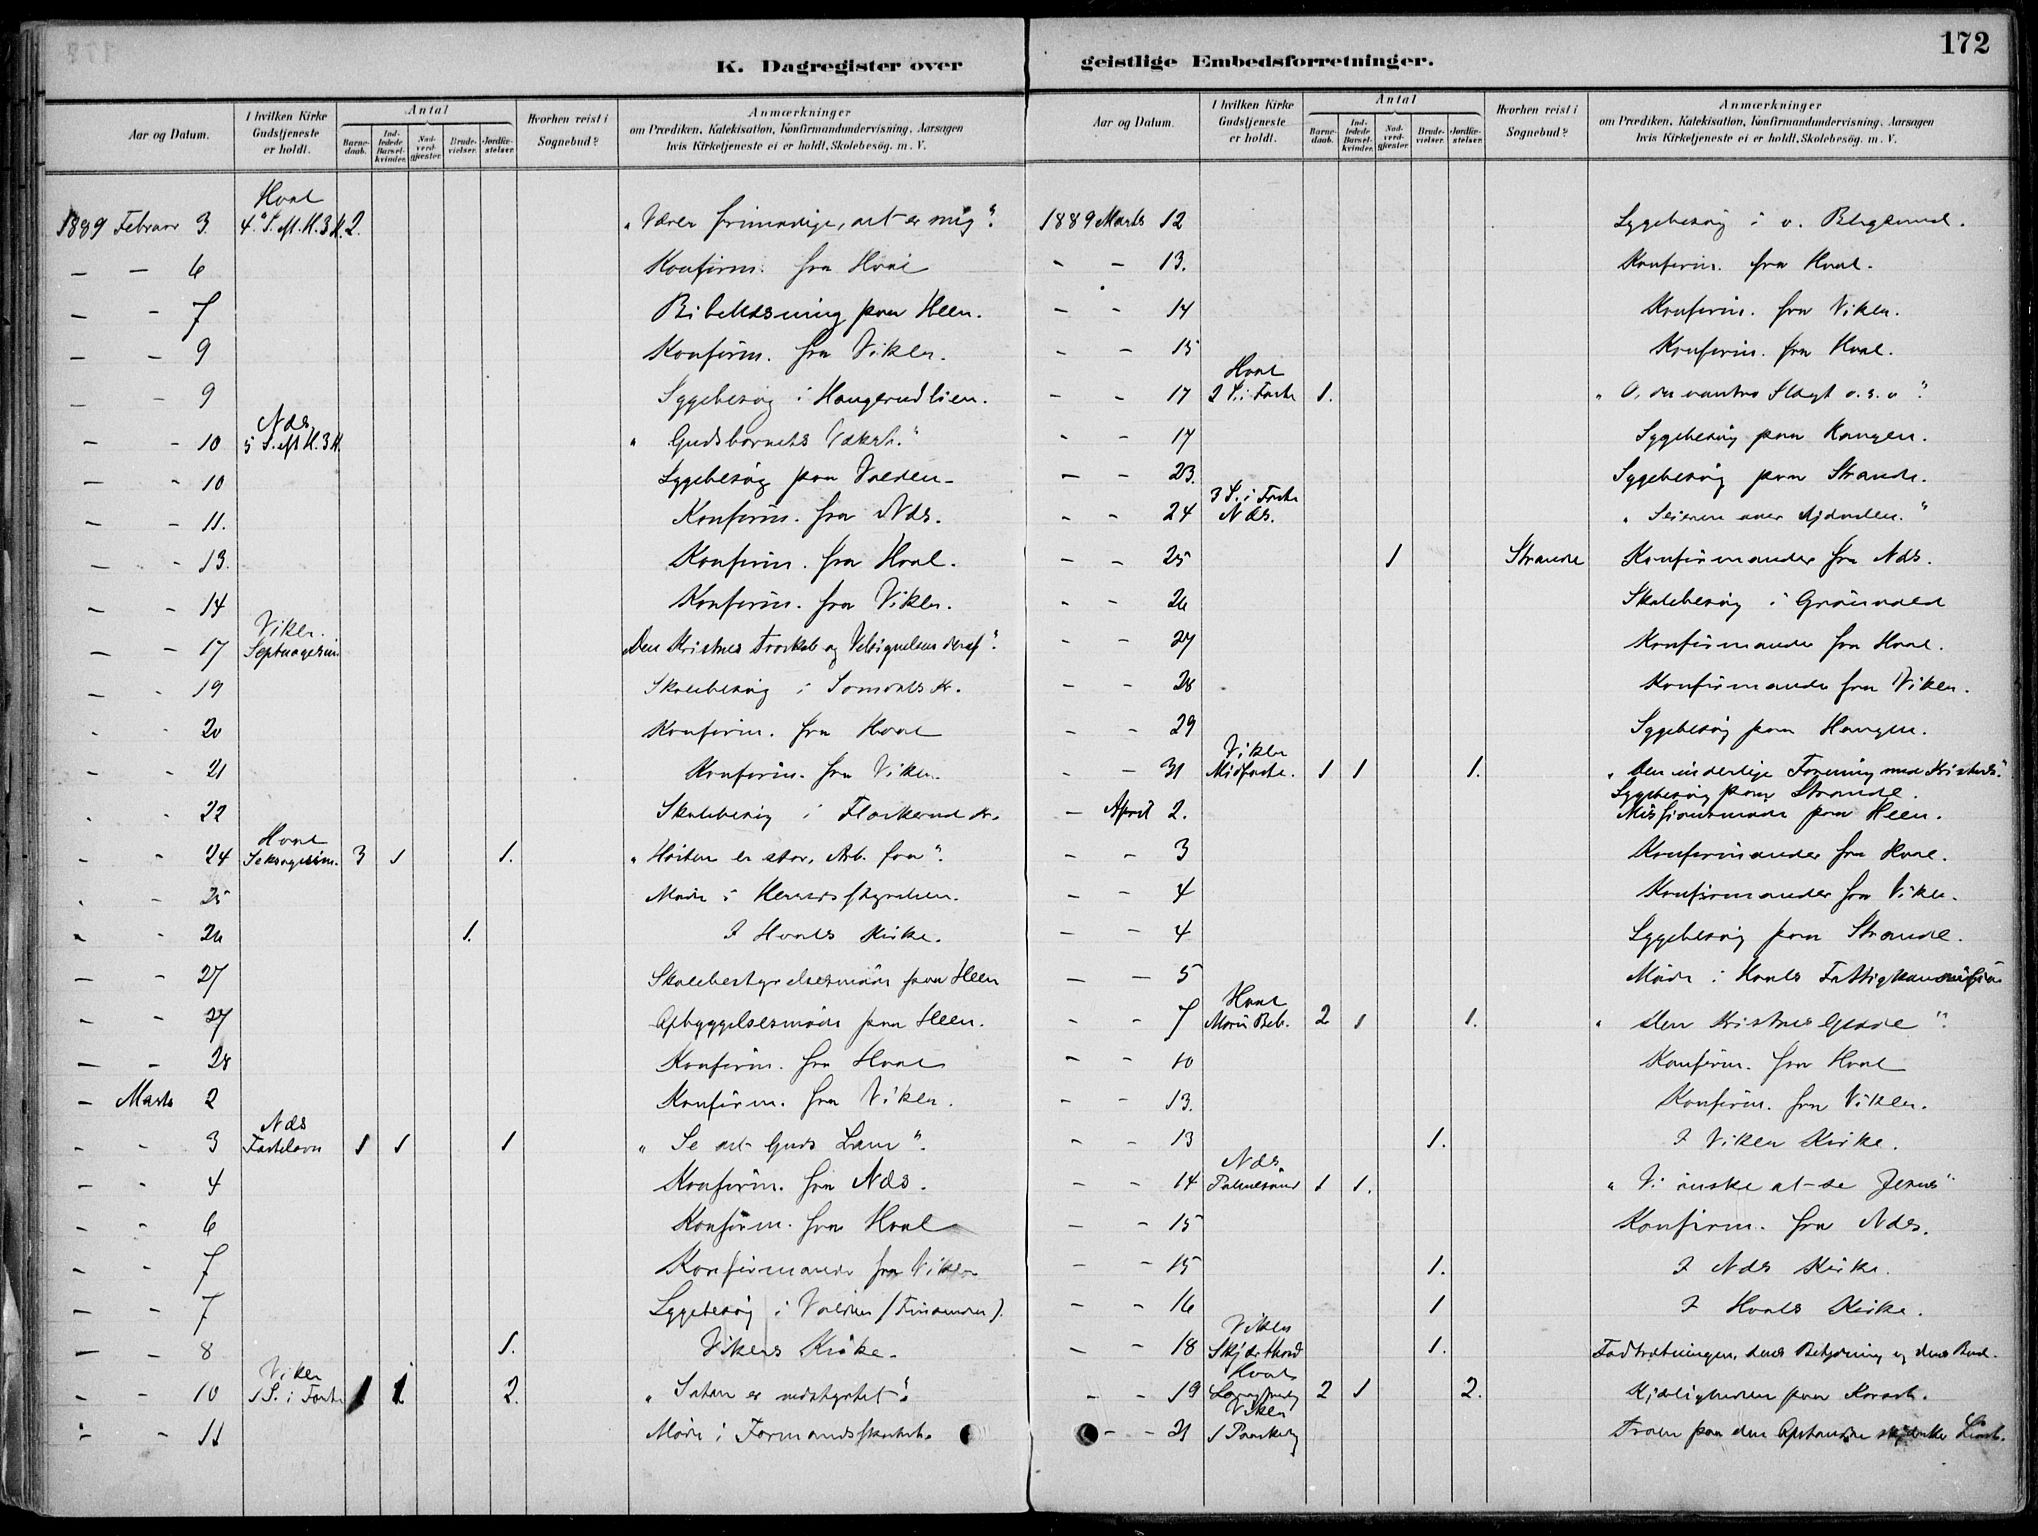 172
K. Dagregister over geistlige Embedsforretninger.
Aar og Datum. I hvilken Kirke Gudstjeneste er holdt. Antal Barnedaab. Indledede Barselkvinder. Nadverdgjæster. Brudevielser. Jordfæstelser. Hvorhen reist i Sognebud? Anmærkninger om Prædiken, Katekisation, Konfirmandundervisning, Aarsagen hvis Kirketjeneste ei er holdt, Skolebesøg. m. V.
1889 Februar 3. Hval 4. S. eft. H. 3 K. 2. „Værer frimodige, det er mig".
— — 6 Konfirm. fra Hval
— - 7 Bibellæsning paa Heen.
— - 9 Konfirm. fra Viker.
— - 9 Sygebesøg i Haugerudlien.
- - 10 Næs. 5 S. eft H. 3 K. „Gudsbarnets Vækst."
— - 10 Sygebesøg paa
— - 11. Konfirm. fra Næs.
— - 13. Konfirm. fra Hval.
— - 14 Konfirm. fra Viker.
— - 17 Viker. Septuagesim. Den Kristnes Troskab og Velsignelsen deraf".
— - 19 Skolebesøg i
- - 20 Konfirm. fra Hval
- - 21 Konfirm. fra Viker.
- - 22 Skolebesøg i Flaskerud Kr.
- - 24 Hval Seksagesim. 3 1 1. „Høsten er stor, Arb. faa".
- - 25 Møde i Herredsstyrelsen.
- - 26 1. I Hvals Kirke.
— - 27 Skolebestyrelsesmøde paa Heen
- - 27 Opbyggelsesmøde paa Heen.
— - 28 Konfirm. fra Hval
— Marts 2 Konfirm. fra Viker.
- - 3 Næs Fastelavn 1 1 1 „Se det Guds Lam".
- - 4 Konfirm. fra Næs.
- - 6 Konfirm. fra Hval
- - 7 Konfirmander fra Viker
— - 7 Sygebesøg i
— - 8 1. Vikers Kirke.
- - 10 Viker 1 S. i Faste 1 1 2. „Satan er nedstyrtet".
- - 11 Møde i Formandsskabet.
Aar og Datum. I hvilken Kirke Gudstjeneste er holdt. Antal Barnedaab. Indledede Barselkvinder. Nadverdgjæster. Brudevielser. Jordfæstelser. Hvorhen reist i Sognebud? Anmærkninger om Prædiken, Katekisation, Konfirmandundervisning, Aarsagen hvis Kirketjeneste ei er holdt, Skolebesøg. m. V.
1889 Marts 12 Sygebesøg i
- - 13. Konfirm. fra Hval.
- - 14 Konfirm. fra Viker.
- - 15 Konfirm. fra Hval.
- - 17 Hval 2 S. i Faste 1. „O, du vantro Slægt o. s. v".
- - 17 Sygebesøg paa
— - 23. Sygebesøg paa Strande.
- - 24 3 S. i Faste Næs. „Seieren over Djævelen."
- - 25 1 Strande Konfirmander fra Næs.
- - 26 Skolebesøg i
- - 27 Konfirmander fra Hval.
— - 28 Konfirmander fra Viker.
— - 29 Sygebesøg paa
- - 31 Viker Midfaste. 1 1 1. „Den inderlige Forening med Kristus". Sygebesøg paa Strande.
— April 2. Missionsmøde paa Heen.
- - 3 Konfirmander fra Hval.
— - 4 Konfirmander fra Viker.
— - 4 Sygebesøg paa Strande.
— — 5 Møde i Hvals Fattigkommission
- - 7 Hval Mariæ Beb. 2 1 1. „Den Kristnes Glæde".
- - 10 Konfirm. fra Hval
- - 13. Konfirm. fra Viker.
- - 13 1. I Viker Kirke.
- - 14 Næs. Palmesønd 1 1. „Vi ønske at se Jesus"
— - 15 Konfirm. fra Næs.
— - 15 1. I Næs Kirke.
— - 16 1 I Hvals Kirke.
— - 18 Viker Skjærthorsd 1. Fodtvætningen, dens Betydning og dens Bud.
- - 19 Hval Langfredag 2 1 2. Kjærligheden paa Korset.
- - 21 Viker 1 Paaskedag Troen paa den Opstandne